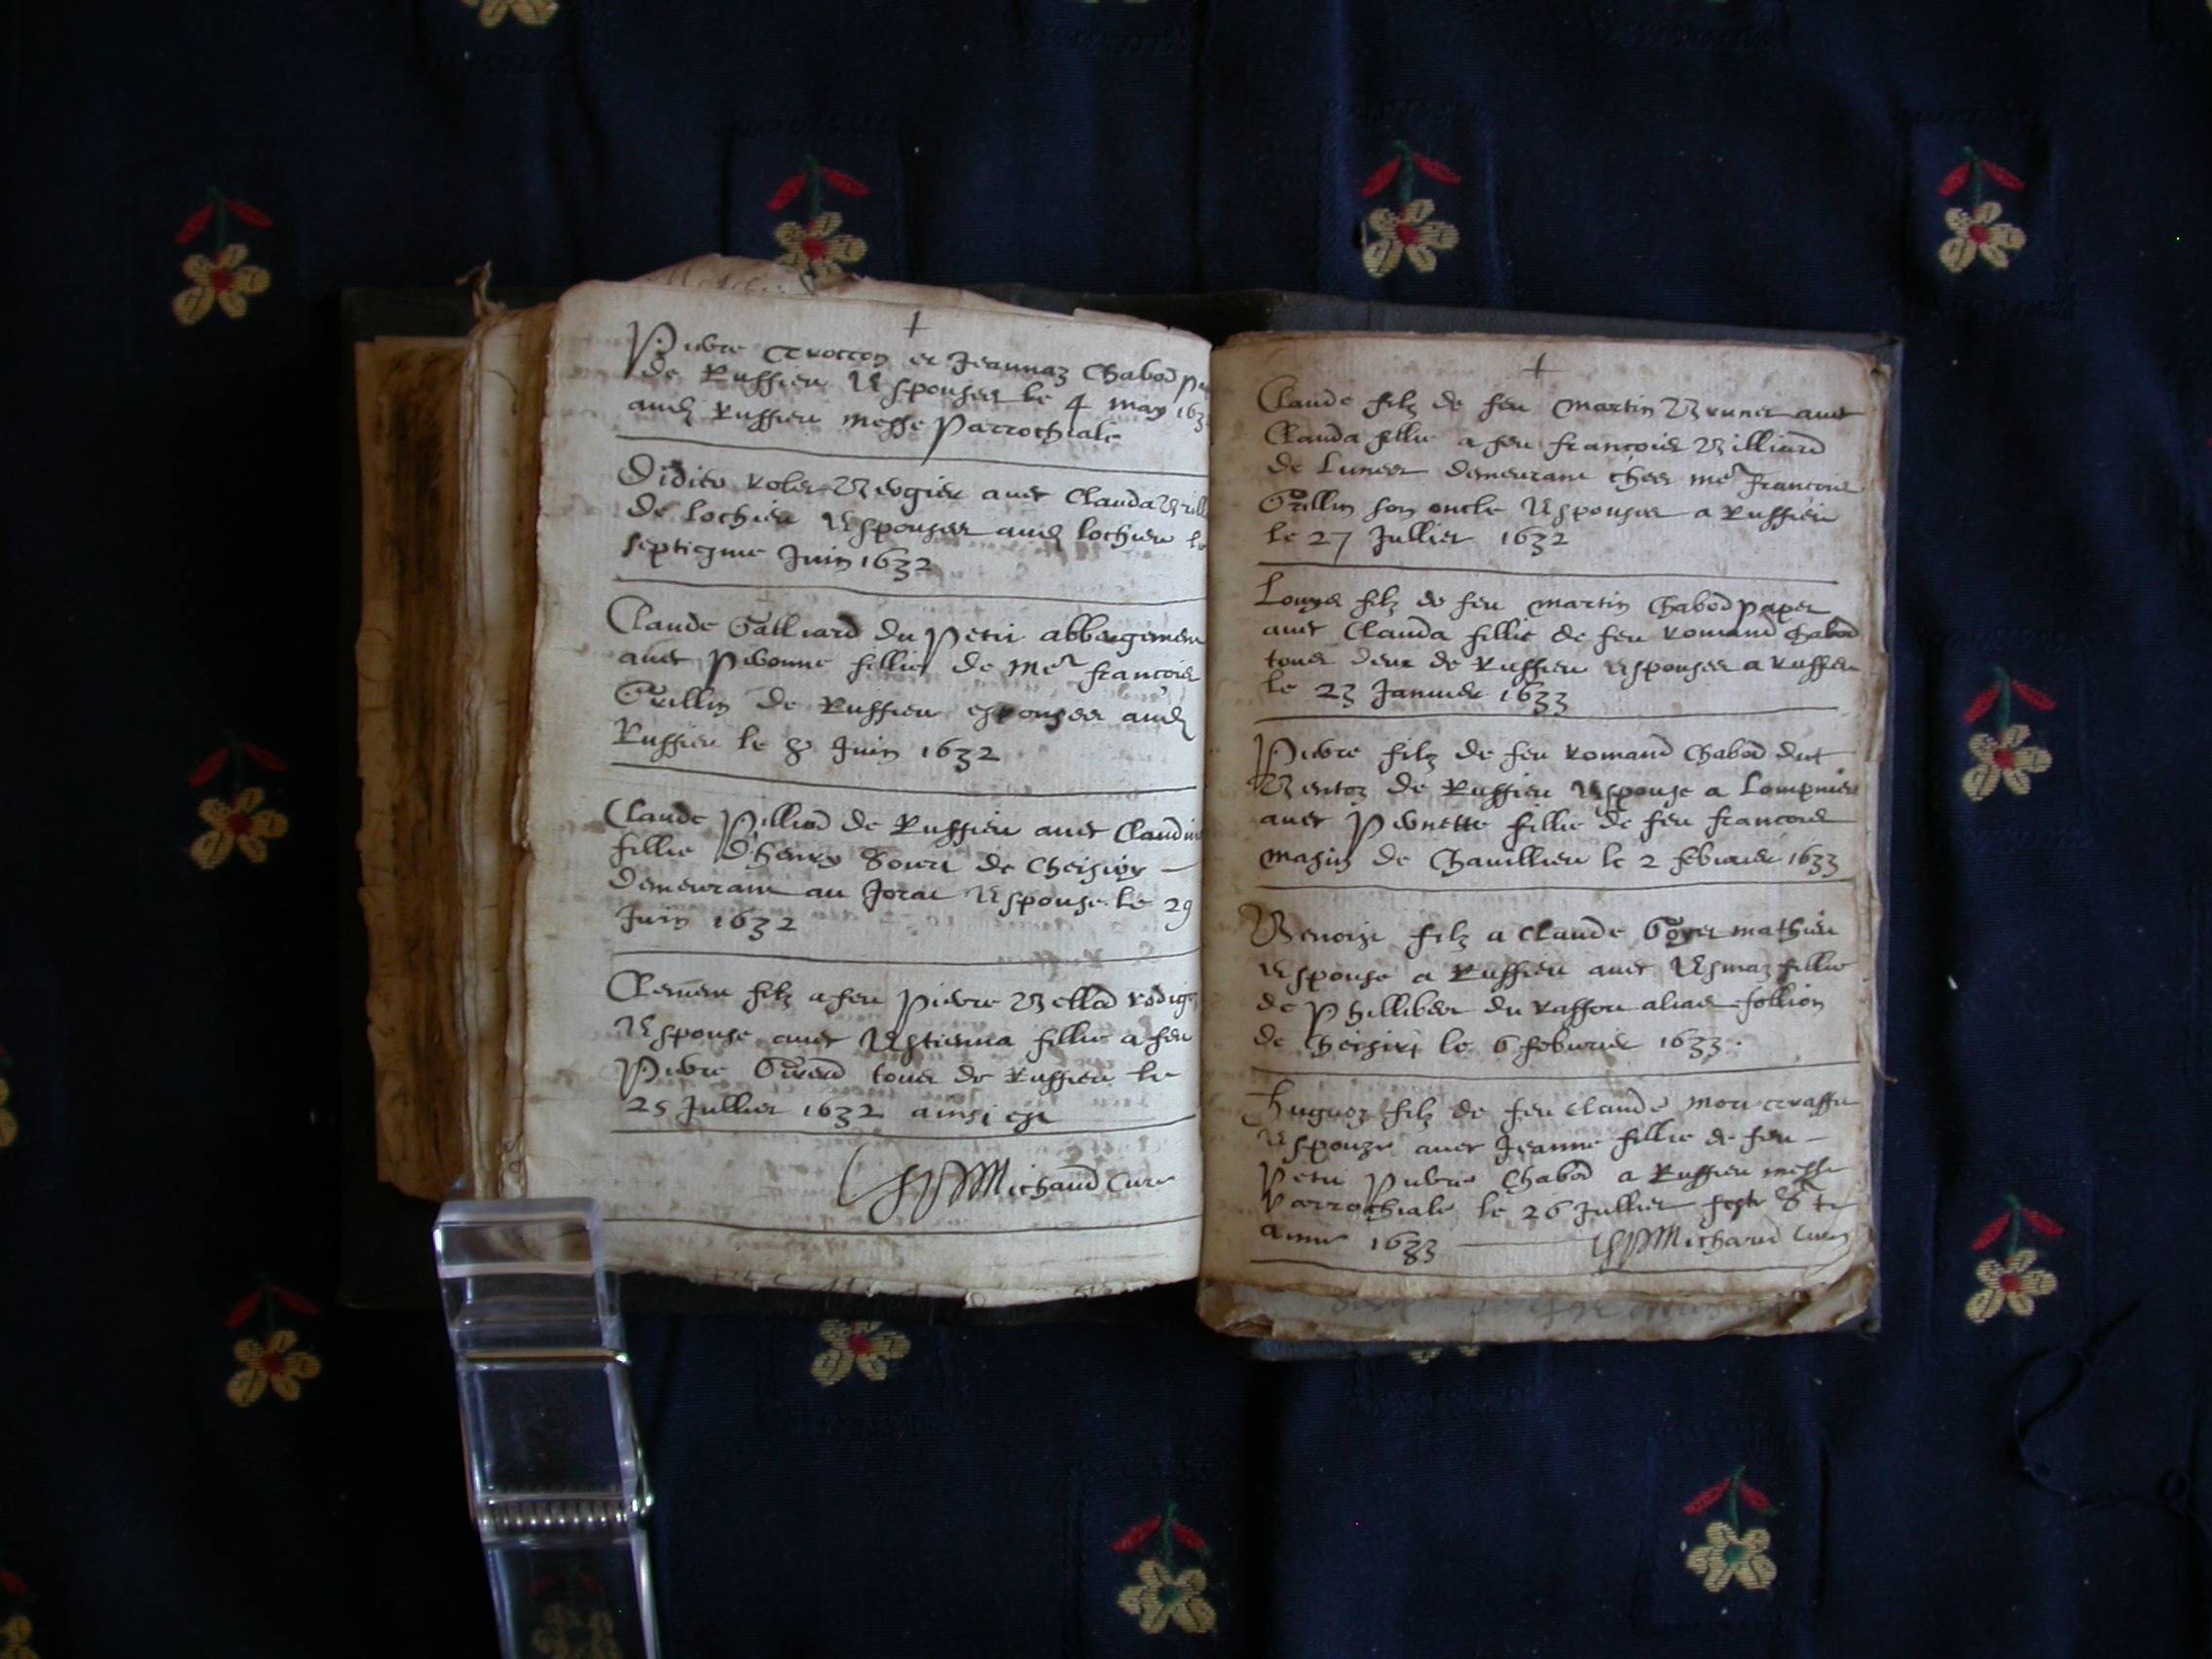 +
Pierre et Jeannaz Chabod
de Ruffieu Espouses le 4 may 163
aud Ruffieu messe Parrochiale
Didier Rolet Bergier avec Clauda
de Lochieu Espouses aud Lochieu le
septiesme Juin 1632
Claude Galliard du Petit abbergement
avec Pivonne fillie de Me François
Grillin de Ruffieu espouses aud
Ruffieu le 8 Juin 1632
Claude Pilliod de Ruffieu avec Claudin
fillie D'henry de Cheisiry
demeurant au Jorat Espouse le 29
Juin 1632
Clement filz a feu Pierre Bellod
Espouse avec Estienna fillie a feu
Pierre Girerd tous de Ruffieu le
25 Jullier 1632 ainsi est
Michaud Cure
+
Claude filz de feu Martin Brunet avec
Clauda fillie a feu francois Billiard
de Lunes demeurant ches me francois
Grillin son oncle Espouses a Ruffieu
le 27 Jullier 1632
Louys filz de feu Martin Chabod
avec Clauda fillie de feu Romand Chabod
tous deux de Ruffieu Espouses a Ruffieu
le 23 Janvier 1633
Pierre filz de feu Romand Chabod dict
de Ruffieu Espouse a Lompnieu
avec Pernette fillie de feu francois
masin de Chavillieu le 2 febvrier 1633
Benoist filz a Claude Goyet mathieu
Espouse a Ruffieu avec Esmaz fillie
de Phillibert du Raffour alias follion
de Cheisiri le 6 febvrier 1633.
Huguoz filz de feu Claude
Espouze avec Jeanne fillie de feu
Petit Pierre Chabod a Ruffieu messe
Parrochiale le 26 Jullier feste Ste
Anne 1633 Michaud Cure